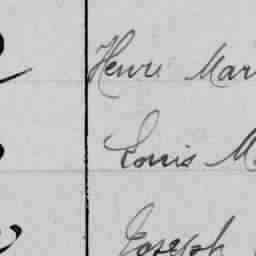 Henri Mar
Louis M
Joseph